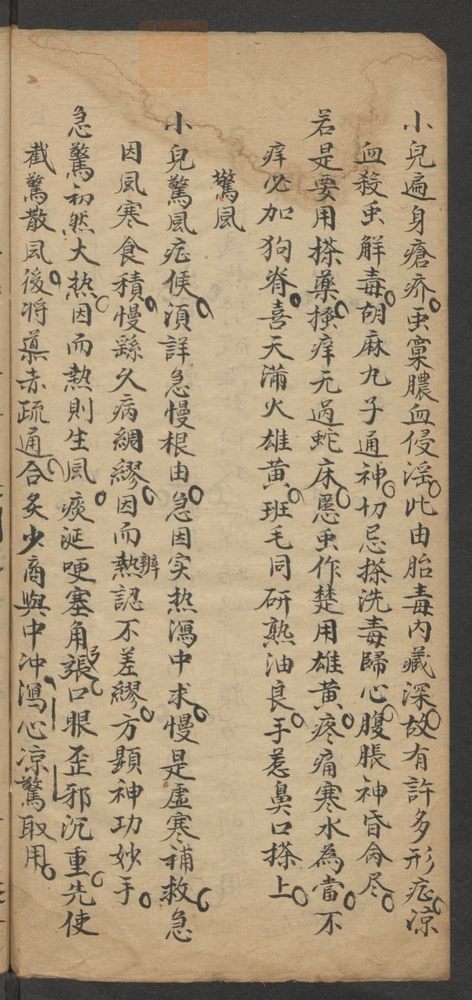 小兒遍身瘡疥虫窠膿血侵淫此由胎毒内藏深故有許多形症凉
血殺虫解毒胡麻九子通神切忌搽洗毒歸心腹脹神昏命尽
若是要用搽藥搽痒无過蛇床恶虫作楚用雄黄疼痛寒水為當不
痒必加狗脊喜天滿火雄黄班毛同研熟油良手惹鼻口搽上
驚風
小兒驚風症候湏詳急慢根由急因实热瀉中求慢是虛寒補救急
因風寒食積慢繇久病綢繆因而熱辨認不差繆方顕神功妙手
急驚初然大热因而熱則生風痰涎哽塞角張口眼歪邪沉重先使
截驚散風後将導赤疏通合灸少商與中冲瀉心凉驚取用